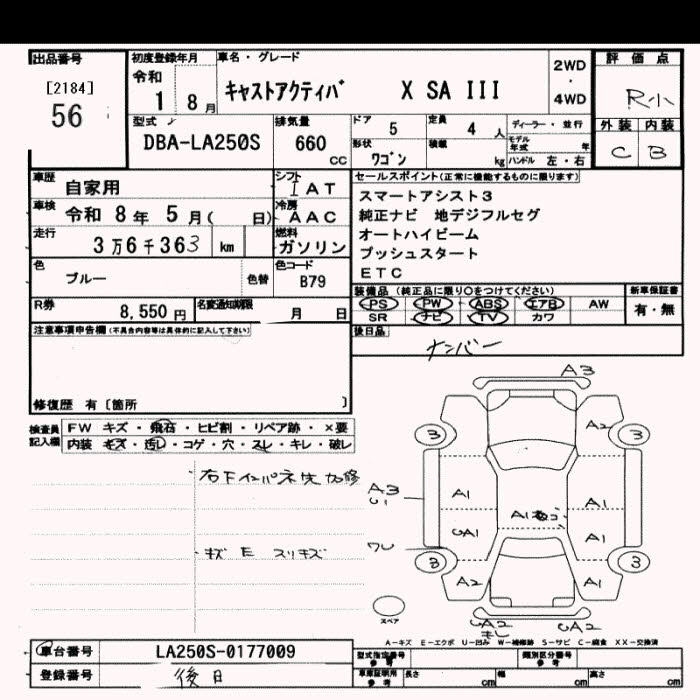 出品番号
[2184]
56
初度登録年月
令和
1 8月
車名・グレード
キャストアクティバ X SA III
2WD
・
4WD
評価点
R小
外装 内装
C B
型式
DBA-LA250S
排気量
660
CC
ドア
5
定員
4 人
形状
ワゴン
積載
kg
ディーラー・並行
モデル年式 年
ハンドル 左・右
車歴
自家用
シフト
I AT
車検
令和 8年 5月( 日)
冷房
AAC
走行
3万6千363 km
燃料
ガソリン
色
ブルー
色替
色コード
B79
R券
8,550円
名変通知期限
月 日
セールスポイント(正常に機能するものに限ります)
スマートアシスト3
純正ナビ 地デジフルセグ
オートハイビーム
プッシュスタート
ETC
装備品(純正品に限り○をつけてください)
PS PW ABS エアB AW
SR ナビ TV カワ
新車保証書
有・無
後日品
ナンバー
注意事項申告欄(不具合内容等は具体的に記入して下さい)
修復歴 有〔箇所 〕
検査員記入欄
FW キズ・飛石・ヒビ割・リペア跡・×要
内装 キズ・汚し・コゲ・穴・スレ・キレ・破レ
キズ E スリキズ
A3
3
3
A2
A3
U1
A1
A1
A1
UA1
A1
3
3
A2
A1
UA2
UA2
スペア
A-キズ E-エクボ U-凹み W-補修跡 S-サビ C-腐食 XX-交換済
車台番号
LA250S-0177009
登録番号
後日
型式指定番号
参考
類別区分番号
参考
車庫証明用
参考
長さ cm 幅 cm 高さ cm